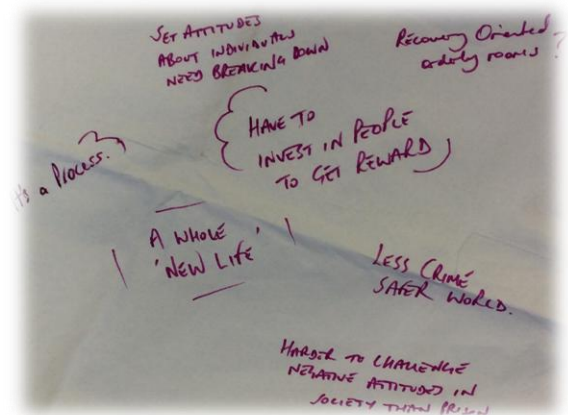 SET ATTITUDES
ABOUT INDIVIDUALS
NEED BREAKING DOWN
Recovery Oriented
orderly rooms ?
HAVE TO
INVEST IN PEOPLE
TO GET REWARD
It's a PROCESS.
A WHOLE
'NEW LIFE'
LESS CRIME
SAFER WORLD.
HARDER TO CHALLENGE
NEGATIVE ATTITUDES IN
SOCIETY THAN PRISON